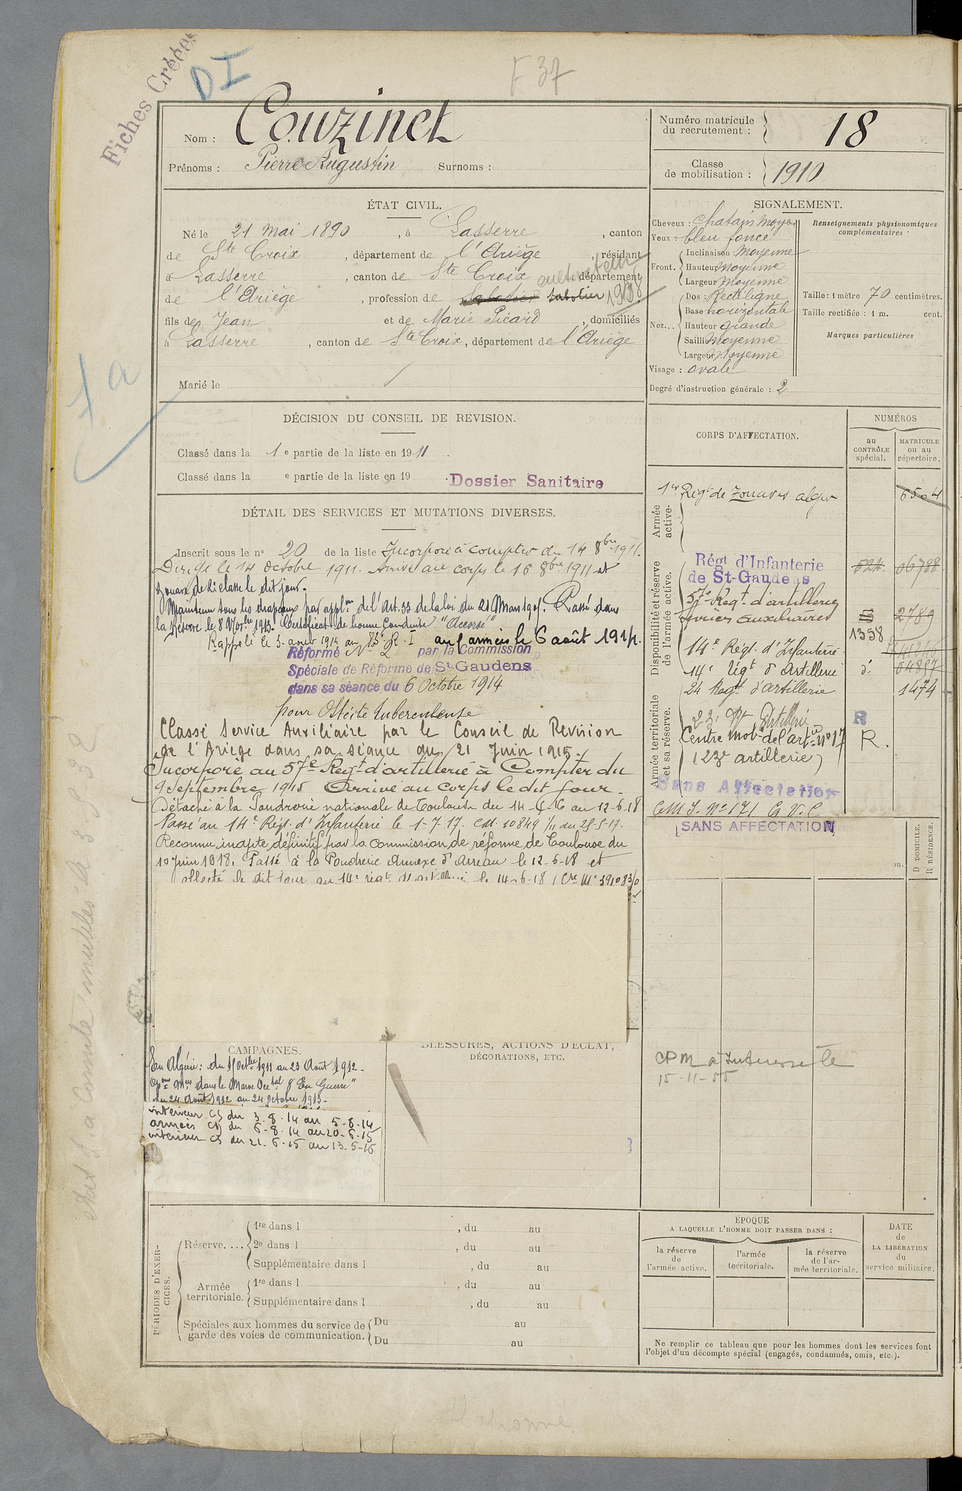 Fiches Créées
DI
F 37
Nom : Couzinet
Prénoms : Pierre Augustin Surnoms :
Numéro matricule du recrutement : 18
Classe de mobilisation : 1910
ÉTAT CIVIL.
Né le 21 mai 1890, à Lasserre, canton
de Ste Croix, département de l'Ariège, résidant
à Lasserre, canton de Ste Croix, département
de l'Ariège, profession de sabotier cultivateur 1938
fils de Jean et de Marie Picard, domiciliés
à Lasserre, canton de Ste Croix, département de l'Ariège
Marié le
SIGNALEMENT.
Cheveux : chatain moyen
Yeux : bleu foncé
Front. Inclinaison Moyenne
Hauteur moyenne
Largeur moyenne
Nez... Dos : Rectiligne
Base horizontale
Hauteur grande
Saillie Moyenne
Largeur Moyenne
Visage : ovale
Renseignements physionomiques complémentaires :
Taille : 1 mètre 70 centimètres.
Taille rectifiée : 1 m. cent.
Marques particulières
Degré d'instruction générale : 2
DÉCISION DU CONSEIL DE REVISION.
Classé dans la 1e partie de la liste en 1911.
Classé dans la e partie de la liste en 19
Dossier Sanitaire
DÉTAIL DES SERVICES ET MUTATIONS DIVERSES.
Inscrit sous le no 20 de la liste Incorporé à compter du 14 8bre 1911.
Dirigé le 14 octobre 1911. Arrivé au corps le 16 8bre 1911 et
zouave de 2e classe le dit jour.
Maintenu sous les drapeaux par appln de l'Art. 33 de la loi du 21 Mars 1905. Passé dans
la Réserve le 8 Novbre 1913. Certificat de bonne conduite "Accordé"
Rappelé le 3 août 1914 au R. I aux armées le 6 août 1914.
Réformé No 2 par la Commission
Spéciale de Réforme de St Gaudens
dans sa séance du 6 Octobre 1914
pour Ostéite tuberculeuse
Classé Service Auxiliaire par le Conseil de Revision
de l'Ariège dans sa séance du 21 Juin 1915.
Incorporé au 57e Régt d'artillerie à Compter du
9 septembre 1915 Arrivé au corps le dit jour.
Détaché à la Poudrerie nationale de Toulouse du 14-6-16 au 12-6-18
Passé au 14e Régt. d'Infanterie le 1-7-17. CM. 10849 1/11 du 28-5-17.
Reconnu inapte définitif par la commission de réforme de Toulouse du
10 juin 1918. Passé à la Poudrerie Annexe d'Arreau le 12-6-18 et
affecté le dit jour au 14e régt d'artillerie le 14-6-18
CORPS D'AFFECTATION.
NUMÉROS
au CONTRÔLE spécial.
MATRICULE ou au répertoire.
Armée active.
1er Régt de Zouaves alger 6504
Disponibilité et réserve de l'armée active.
Régt d'Infanterie
de St-Gaudens
57e Regt d'artillerie
services auxiliaires 2789
1358
14e Régt. d'Infanterie
14e Régt d'Artillerie
24 Regt d'artillerie 1474
Armée territoriale et sa réserve.
23e Rt Artillerie R
Centre mobre de l'artie no 17 R.
(23e artillerie)
Sans Affectation
SANS AFFECTATION
D DOMICILE.
R RÉSIDENCE.
CAMPAGNES.
En Algérie : du 16 Octbre 1911 au 23 Août 1912.
dans le Maroc Occtal "En Guerre"
du 24 Août 1912 au 24 octobre 1913.
intérieur CS du 3-8-14 au 5-8-14
armées CD du 6-8-14 au 20-6-15
intérieur CS du 21-6-15 au 13-5-16
BLESSURES, ACTIONS D'ÉCLAT,
DÉCORATIONS, ETC.
15-11-55
PÉRIODES D'EXERCICES.
Réserve.... 1re dans l , du au
2e dans l , du au
Supplémentaire dans l , du au
Armée territoriale. 1re dans l , du au
Supplémentaire dans l , du au
Spéciales aux hommes du service de garde des voies de communication. Du au
Du au
ÉPOQUE
A LAQUELLE L'HOMME DOIT PASSER DANS :
la réserve de l'armée active.
l'armée territoriale.
la réserve de l'armée territoriale.
DATE de LA LIBÉRATION du service militaire.
Ne remplir ce tableau que pour les hommes dont les services font
l'objet d'un décompte spécial (engagés, condamnés, omis, etc.).